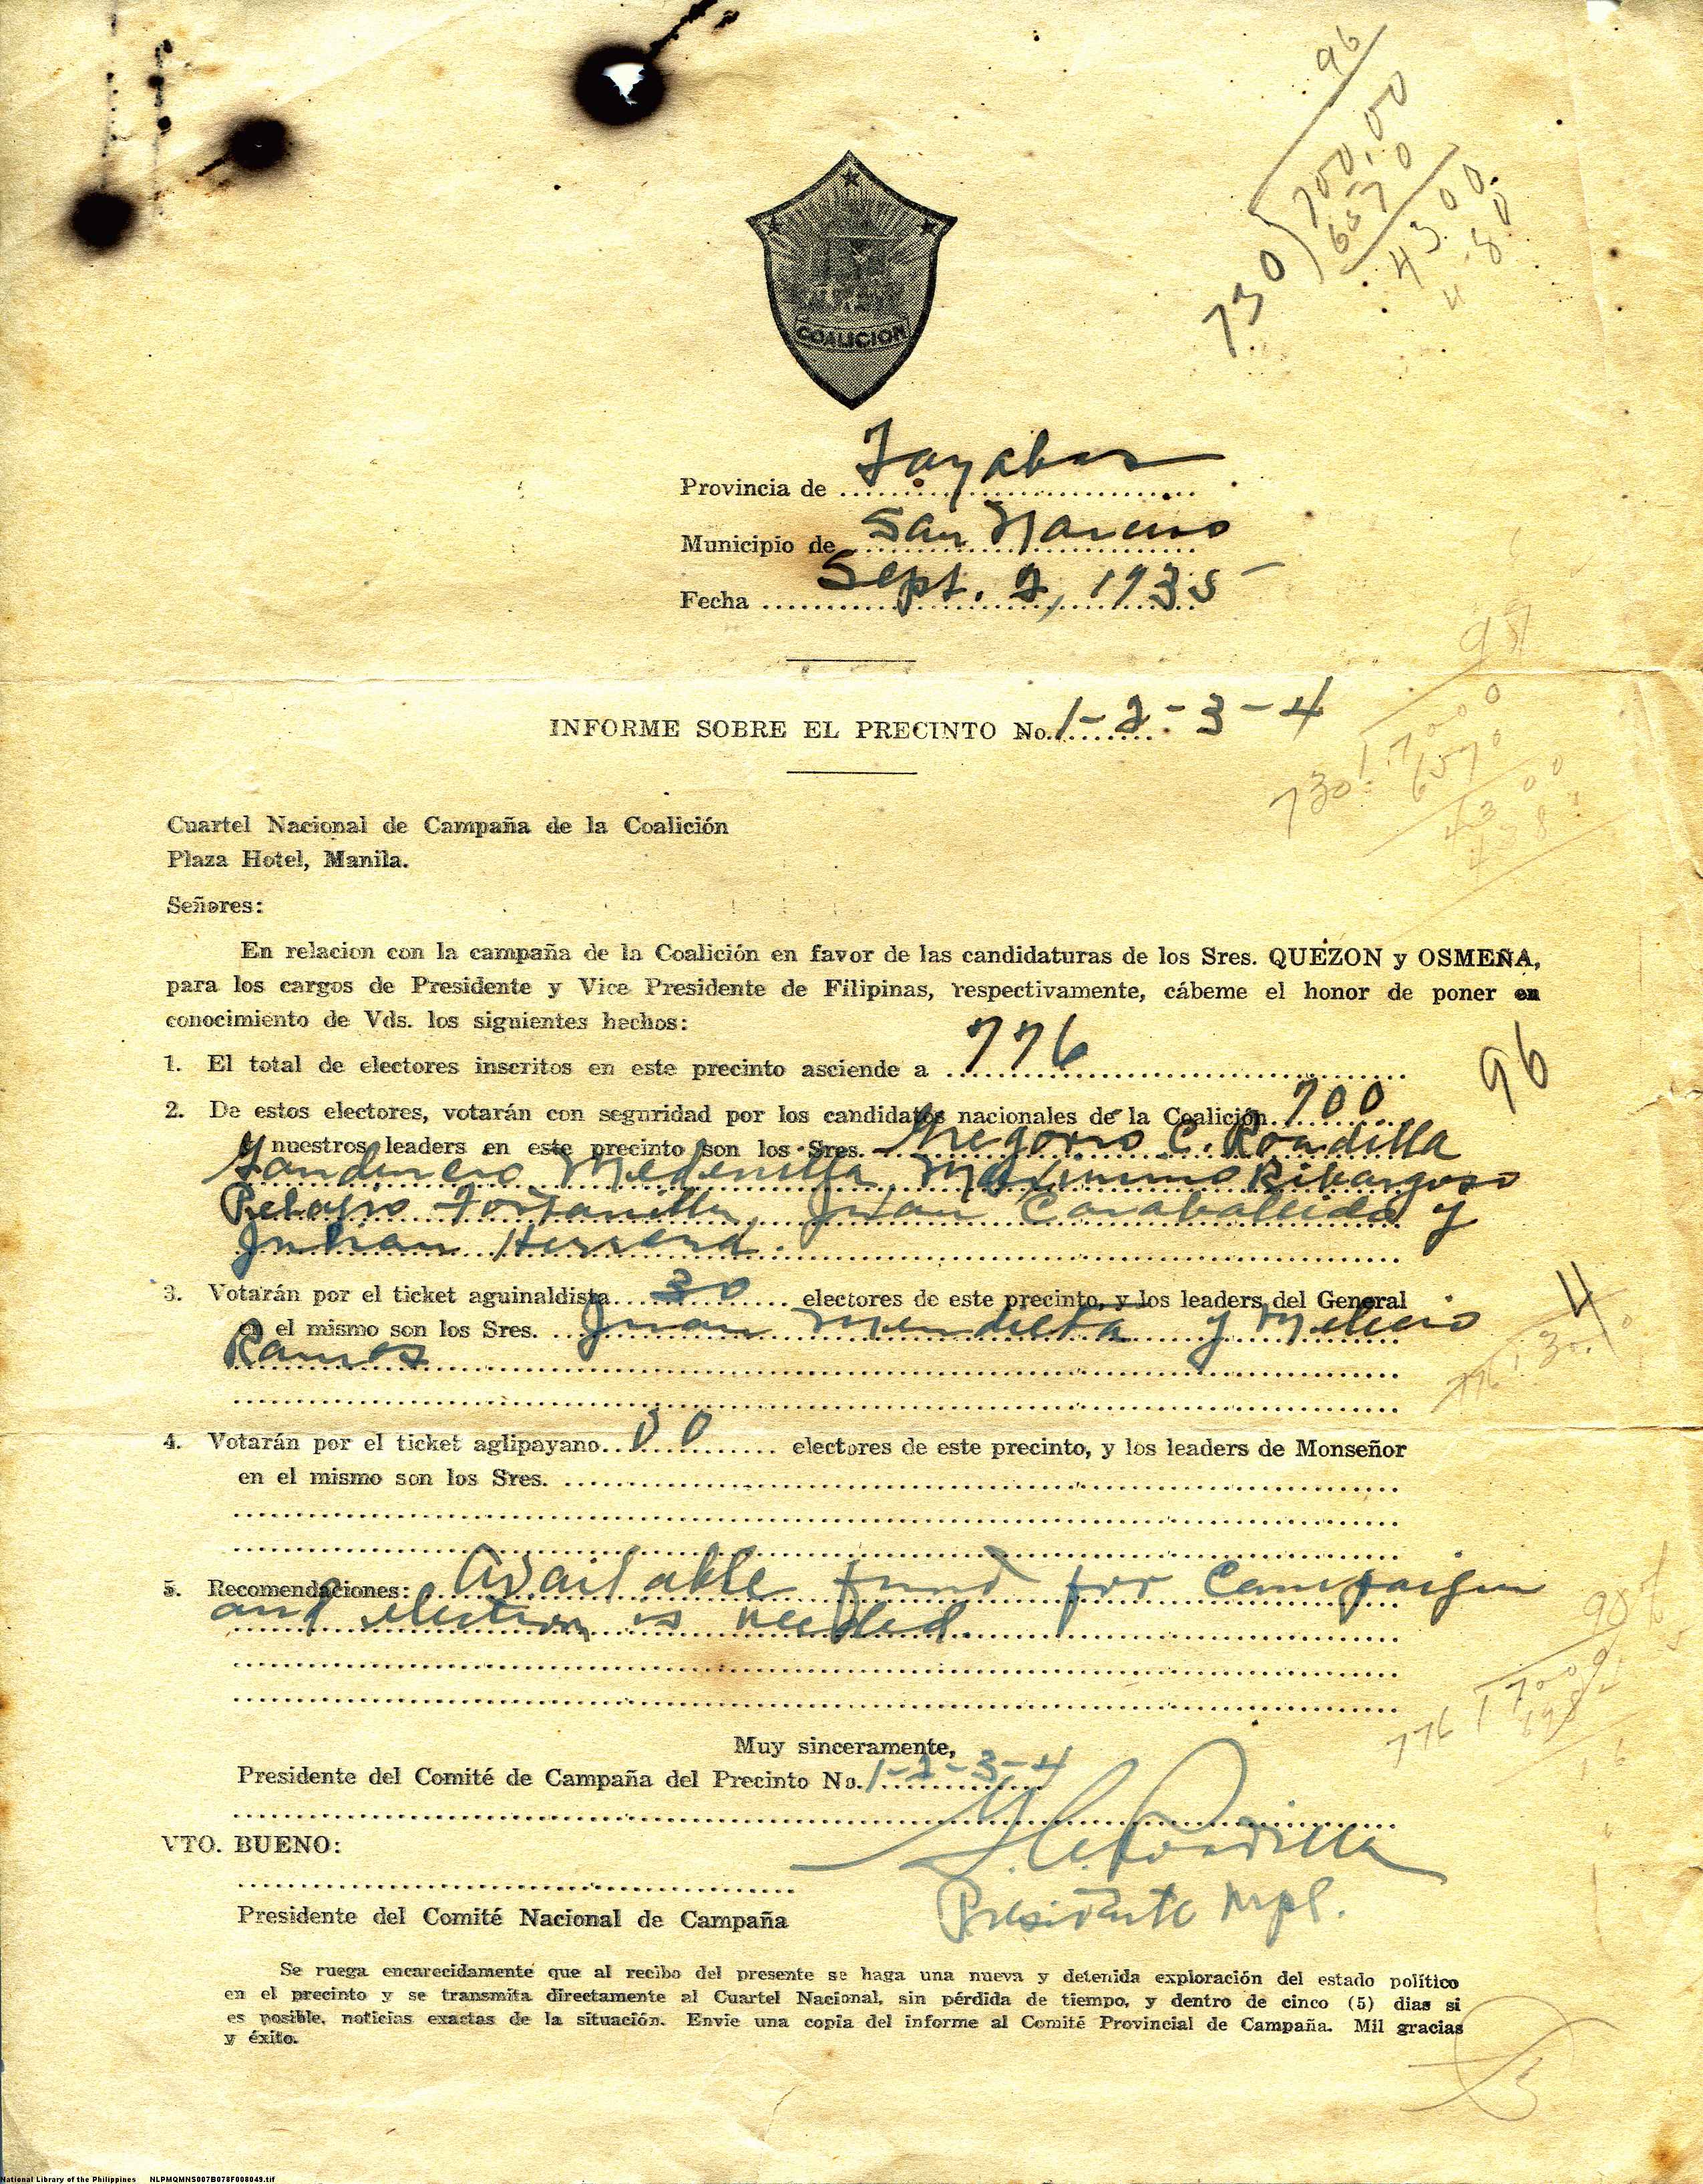 96
730 ) 700.00
6570
4300
COALICION
Provincia de Tayabas
Municipio de San Narciso
Fecha Sept. 2, 1935
INFORME SOBRE EL PRECINTO No. 1-2-3-4
Cuartel Nacional de Campaña de la Coalición
Plaza Hotel, Manila.
Señores:
En relacion con la campaña de la Coalición en favor de las candidaturas de los Sres. QUEZON y OSMEÑA,
para los cargos de Presidente y Vice Presidente de Filipinas, respectivamente, cábeme el honor de poner en
conocimiento de Vds. los siguientes hechos:
1. El total de electores inscritos en este precinto asciende a 776
96
2. De estos electores, votarán con seguridad por los candidatos nacionales de la Coalición 700
y nuestros leaders en este precinto son los Sres. Gregorio C. Rondilla
Medenilla, Maximino Ribargoso
Pelagio Fortanilla, Juan Caraballido y
Julian Herrera.
3. Votarán por el ticket aguinaldista 30 electores de este precinto, y los leaders del General
en el mismo son los Sres. Juan Mendieta y Melecio
Ramos
4
4. Votarán por el ticket aglipayano 00 electores de este precinto, y los leaders de Monseñor
en el mismo son los Sres.
5. Recomendaciones: Available fund for campaign
and election is needed.
776
Muy sinceramente,
Presidente del Comité de Campaña del Precinto No. 1-2-3-4
G. C. Rondilla
VTO. BUENO:
Presidente Mpl.
Presidente del Comité Nacional de Campaña
Se ruega encarecidamente que al recibo del presente se haga una nueva y detenida exploración del estado político
en el precinto y se transmita directamente al Cuartel Nacional, sin pérdida de tiempo, y dentro de cinco (5) dias si
es posible, noticias exactas de la situación. Envie una copia del informe al Comité Provincial de Campaña. Mil gracias
y éxito.
National Library of the Philippines NLPMQMNS007B078F008049.tif